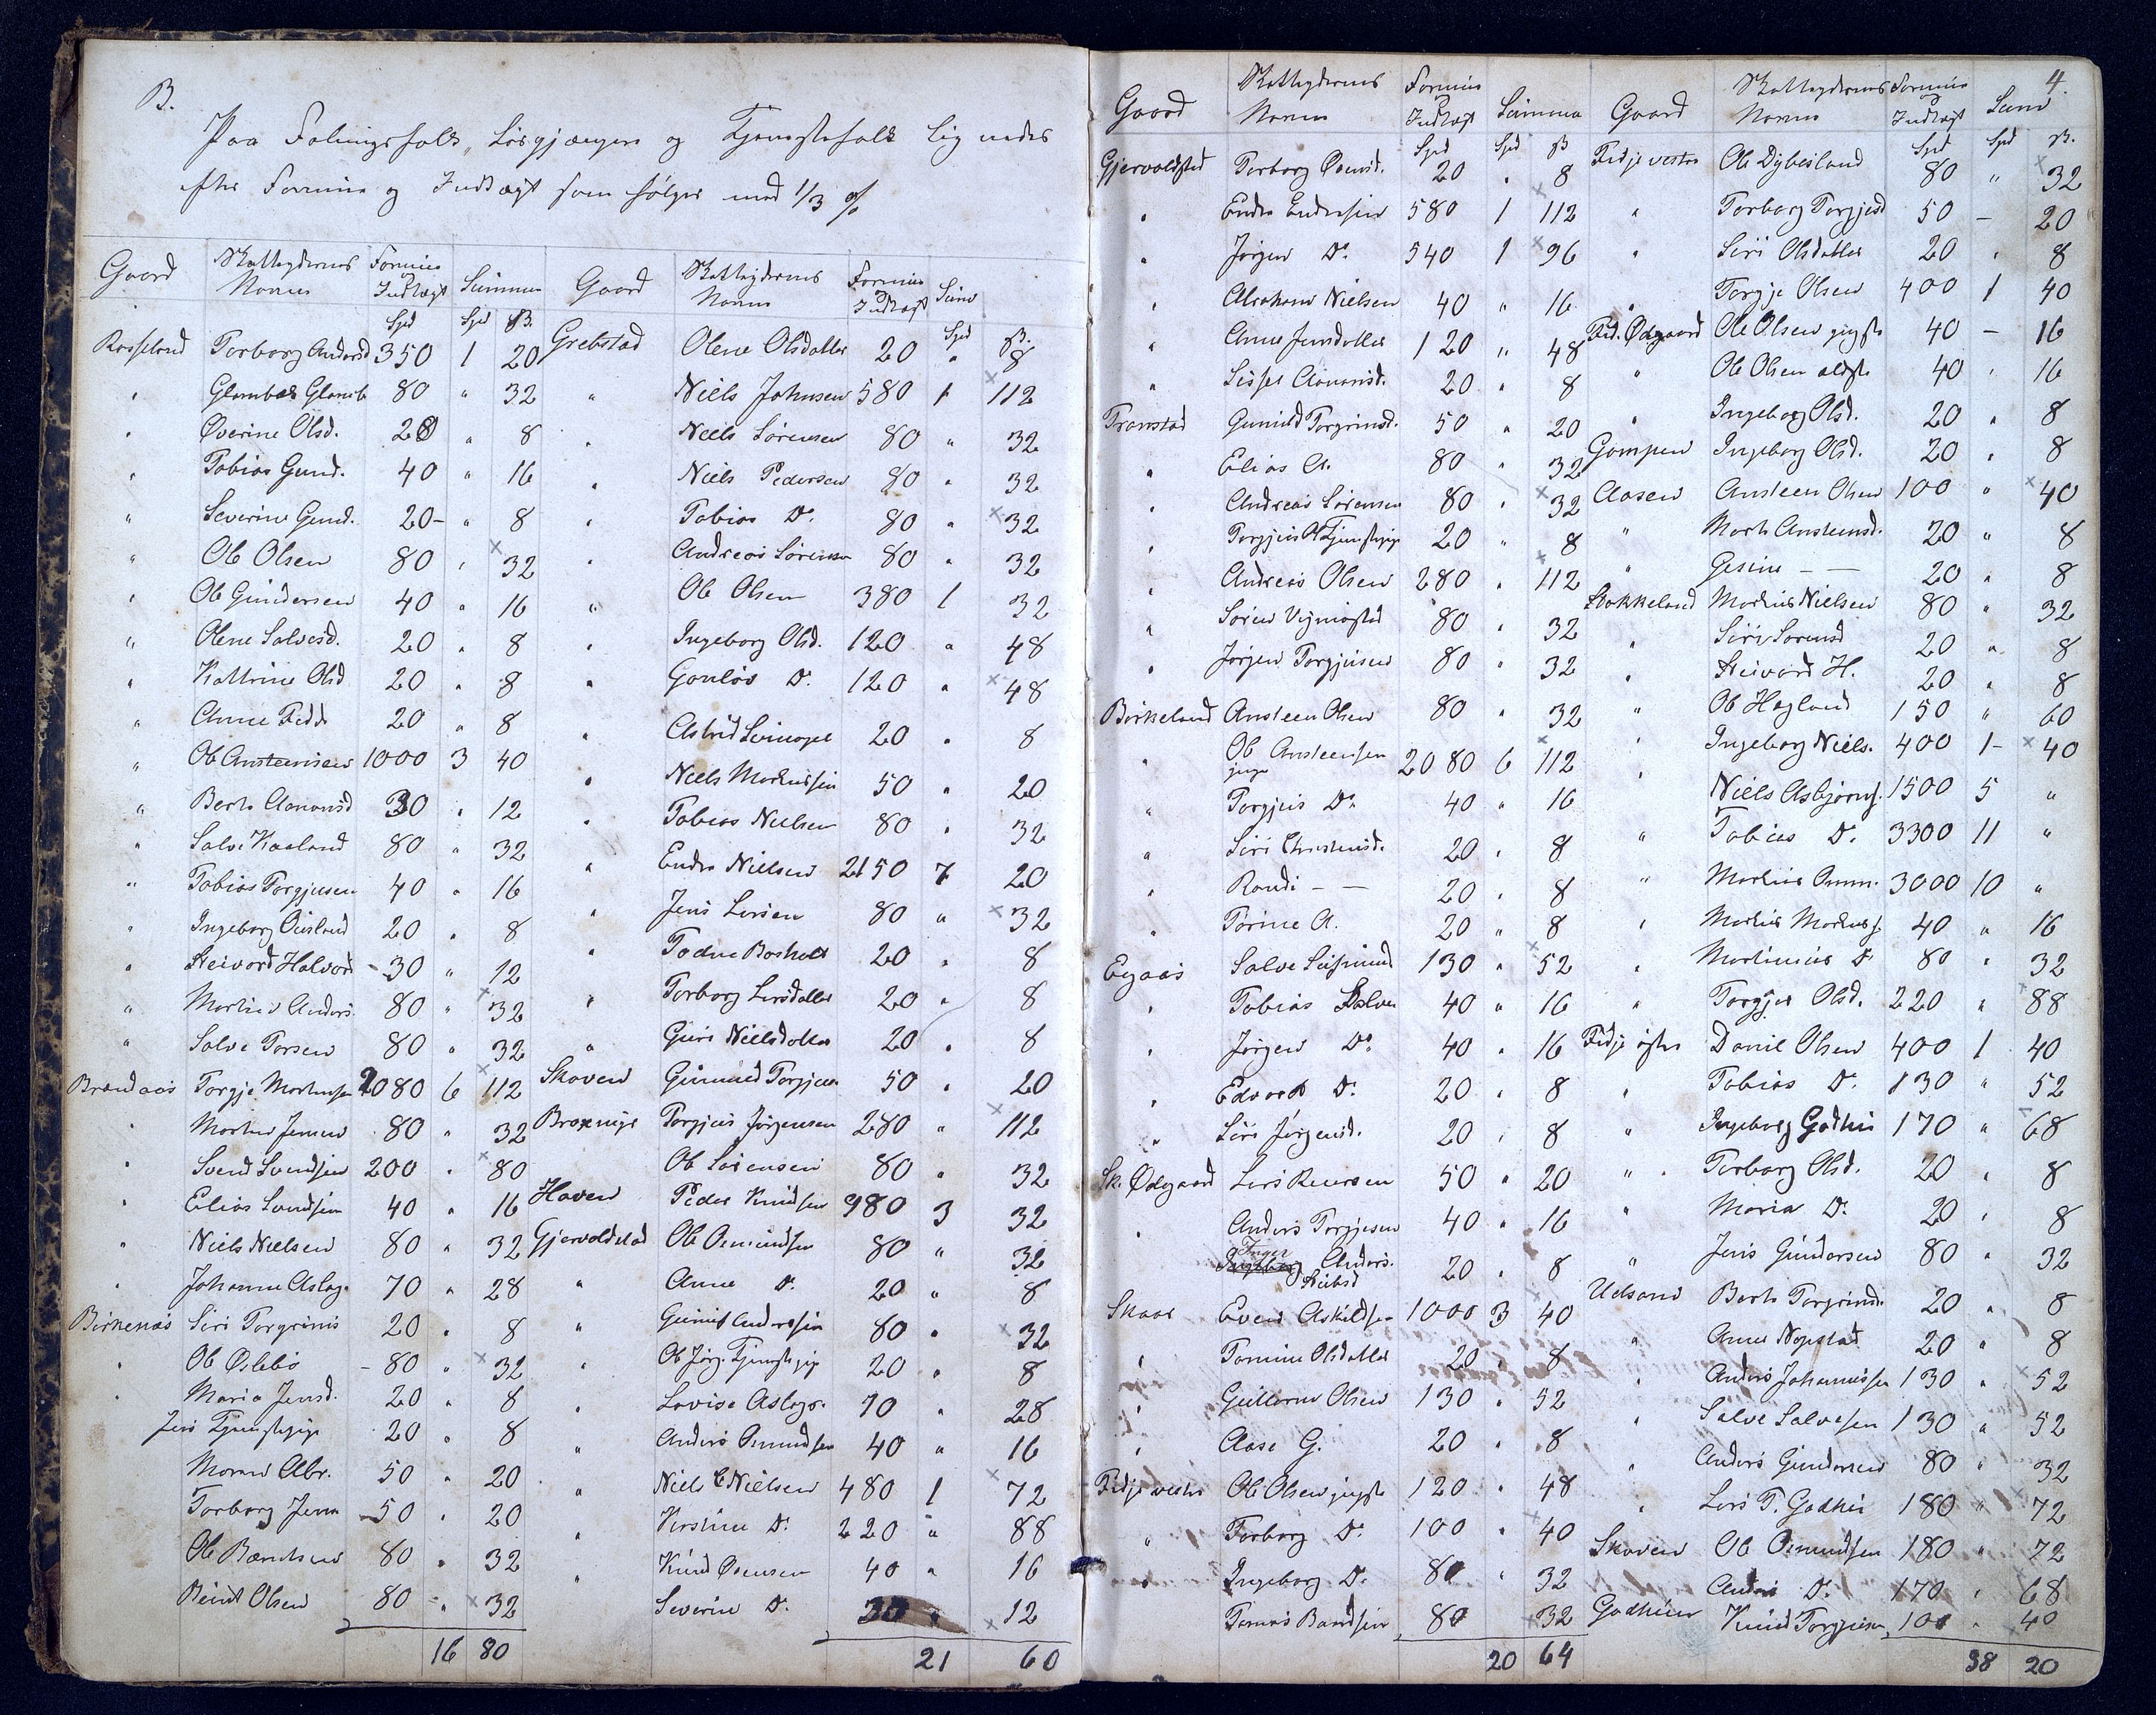 B.
Paa Folungsfolk, Løsgjængere og Tjenestefolk lignedes
efter Formue og Indtægt som følger med 1/3 %
Gaard Skatteydernes Navne Formue & Indtægt Summa
Spd Spd ß.
Rosseland Torborg Andersd 350 1 20
" Glambek Glamb 80 " 32
" Øverine Olsd. 20 " 8
" Tobias Gund. 40 " 16
" Severine Gund. 20 - " 8
" Ole Olsen 80 " 32
" Ole Gundersen 40 " 16
" Olene Salvesd. 20 " 8
" Kattrine Olsd 20 " 8
" Anne Fidd 20 " 8
" Ole Ansteensen 1000 3 40
" Berte Aanonsd 30 " 12
" Salve Kaaland 80 " 32
" Tobias Torgjusen 40 " 16
" Ingeborg 20 " 8
" Steivord Halvord 30 " 12
" Markus Anders. 80 " 32
" Salve Torsen 80 " 32
Brandaas Torgje Markusen 2080 6 112
" Markus Jensen 80 " 32
" Svend Svendsen 200 " 80
" Elias Svendsen 40 " 16
" Niels Nielsen 80 " 32
" Johanne Aslag. 70 " 28
Birkenæs Siri Torgrims 20 " 8
" Ole Øvlebø 80 " 32
" Maria Jensd. 20 " 8
Jens Tjenestepige 20 " 8
Maren Abr. 50 " 20
Torborg Jens 50 " 20
Ole Berntsen 80 " 32
Berent Olsen 80 " 32
16 80
Gaard Skatteydernes Navne Formue & Indtægt Sum
Spd ß.
Grebstad Olene Olsdatter 20 " 8
" Niels Johnsen 580 1 112
" Niels Sørensen 80 " 32
" Niels Pedersen 80 " 32
" Tobias Do. 80 " 32
" Andreas Sørensen 80 " 32
" Ole Olsen 380 1 32
" Ingeborg Olsd. 120 " 48
" Gonløs Do. 120 " 48
" Astrid 20 " 8
" Niels Markussen 50 " 20
" Tobias Nielsen 80 " 32
" Endre Nielsen 2150 7 20
" Jens Larsen 80 " 32
" Todne 20 " 8
" Torborg Larsdatter 20 " 8
" Guri Nielsdatter 20 " 8
Skoven Gunuld Torgjus. 50 " 20
Bropnige Torgjus Jørgensen 280 " 112
Ole Sørensen 80 " 32
Haven Peder Knudsen 980 3 32
Gjervoldstad Ole Omundsen 80 " 32
" Anne Do. 20 " 8
" Gunuf Anderssen 80 " 32
" Ole Jørg. Tjenestepige 20 " 8
" Lovise Aslags. 70 " 28
" Anders Omundsen 40 " 16
" Niels E Nielsen 480 1 72
" Kirstine Do. 220 " 88
" Knud Ovensen 40 " 16
Severin Do. 30 " 12
21 60
4.
Gaard Skatteydernes Navne Formue & Indtægt Summa
Spd Spd ß
Gjervoldstad Torborg Omund. 20 " 8
" Endre Endresen 580 1 112
" Jørgen Do. 540 1 96
" Abraham Nielsen 40 " 16
" Anne Jensdatter 120 " 48
" Sissel Aanonsd. 20 " 8
Tronstad Gunuld Torgrimsd. 50 " 20
" Elias A. 80 " 32
" Andreas Sørensen 80 " 32
" Torgjus A Tjenestepige 20 " 8
" Andreas Olsen 280 " 112
" Søren Vigmostad 80 " 32
" Jørgen Torgjusen 80 " 32
Birkeland Ansteen Olsen 80 " 32
" Ole Ansteensen junge 2080 6 112
" Torgjus Do. 40 " 16
" Siri Christensd. 20 " 8
" Randi - - 20 " 8
" Torine A. 20 " 8
Egaas Salve Sigmund 130 " 52
" Tobias Salves 40 " 16
" Jørgen Do. 40 " 16
" Edvard Do. 20 " 8
" Siri Jørgensd. 20 " 8
Sk. Ødegaard Lars Reiersen 50 " 20
" Anders Torgjesen 40 " 16
Inger Anders. 20 " 8
Skaar Even Askildsen 1000 3 40
" Tomine Olsdatter 20 " 8
" Guttorm Olsen 130 " 52
" Aase G. 20 " 8
Fidje vestre Ole Olsen yngste 120 " 48
" Torborg Do. 100 " 40
" Ingeborg Do. 80 " 32
Tomas Bandsen 80 32
20 64
Gaard Skatteydernes Navne Formue & Indtægt Sum
Spd Spd ß.
Fidje vestre Ole Dybesland 80 " 32
" Torborg Torgjesd 50 - 20
" Siri Olsdatter 20 " 8
" Torgje Olsen 400 1 40
Fid. Ødegaard Ole Olsen yngste 40 - 16
" Ole Olsen ældste 40 " 16
" Ingeborg Olsd. 20 " 8
Gompen Ingeborg Olsd. 20 " 8
Aasen Ansteen Olsen 100 " 40
" Marte Ansteensd. 20 " 8
" Gesine - - 20 " 8
Stokkeland Markus Nielsen 80 " 32
" Siri Sørensd 20 " 8
" Steivord H. 20 " 8
" Ole Hægland 150 " 60
" Ingeborg Niels. 400 1 - 40
" Niels Asbjørns. 1500 5 "
" Tobias Do. 3300 11 "
" Markus Omm. 3000 10 "
" Markus Markuss. 40 " 16
" Martinius Do 80 " 32
" Torgjer Olsd. 220 " 88
Fidje østre Daniel Olsen 400 1 40
" Tobias Do. 130 " 52
" Ingeborg Godhei 170 " 68
" Torborg Olsd. 20 " 8
" Maria Do. 20 " 8
" Jens Gundersen 80 " 32
Udsand Berte Torgrimsd. 20 " 8
" Anne Nopstad 20 " 8
" Anders Johannessen 130 " 52
" Salve Salvesen 130 " 52
" Anders Gundersen 80 " 32
" Lars T. Godhei 180 " 72
Skoven Ole Omundsen 180 " 72
Anders Do. 170 " 68
Godheien Knud Torgjusen 100 " 40
38 20